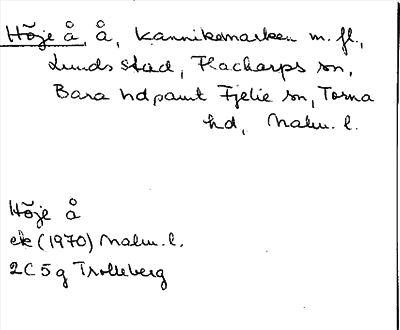 Höje å, å, Kannikemarken m. fl.,
Lunds stad, Flackarps sn,
Bara hd samt Fjelie sn, Torna
hd, Malm. l.
Höje å
ek (1970) Malm. l.
2C5g Trolleberg